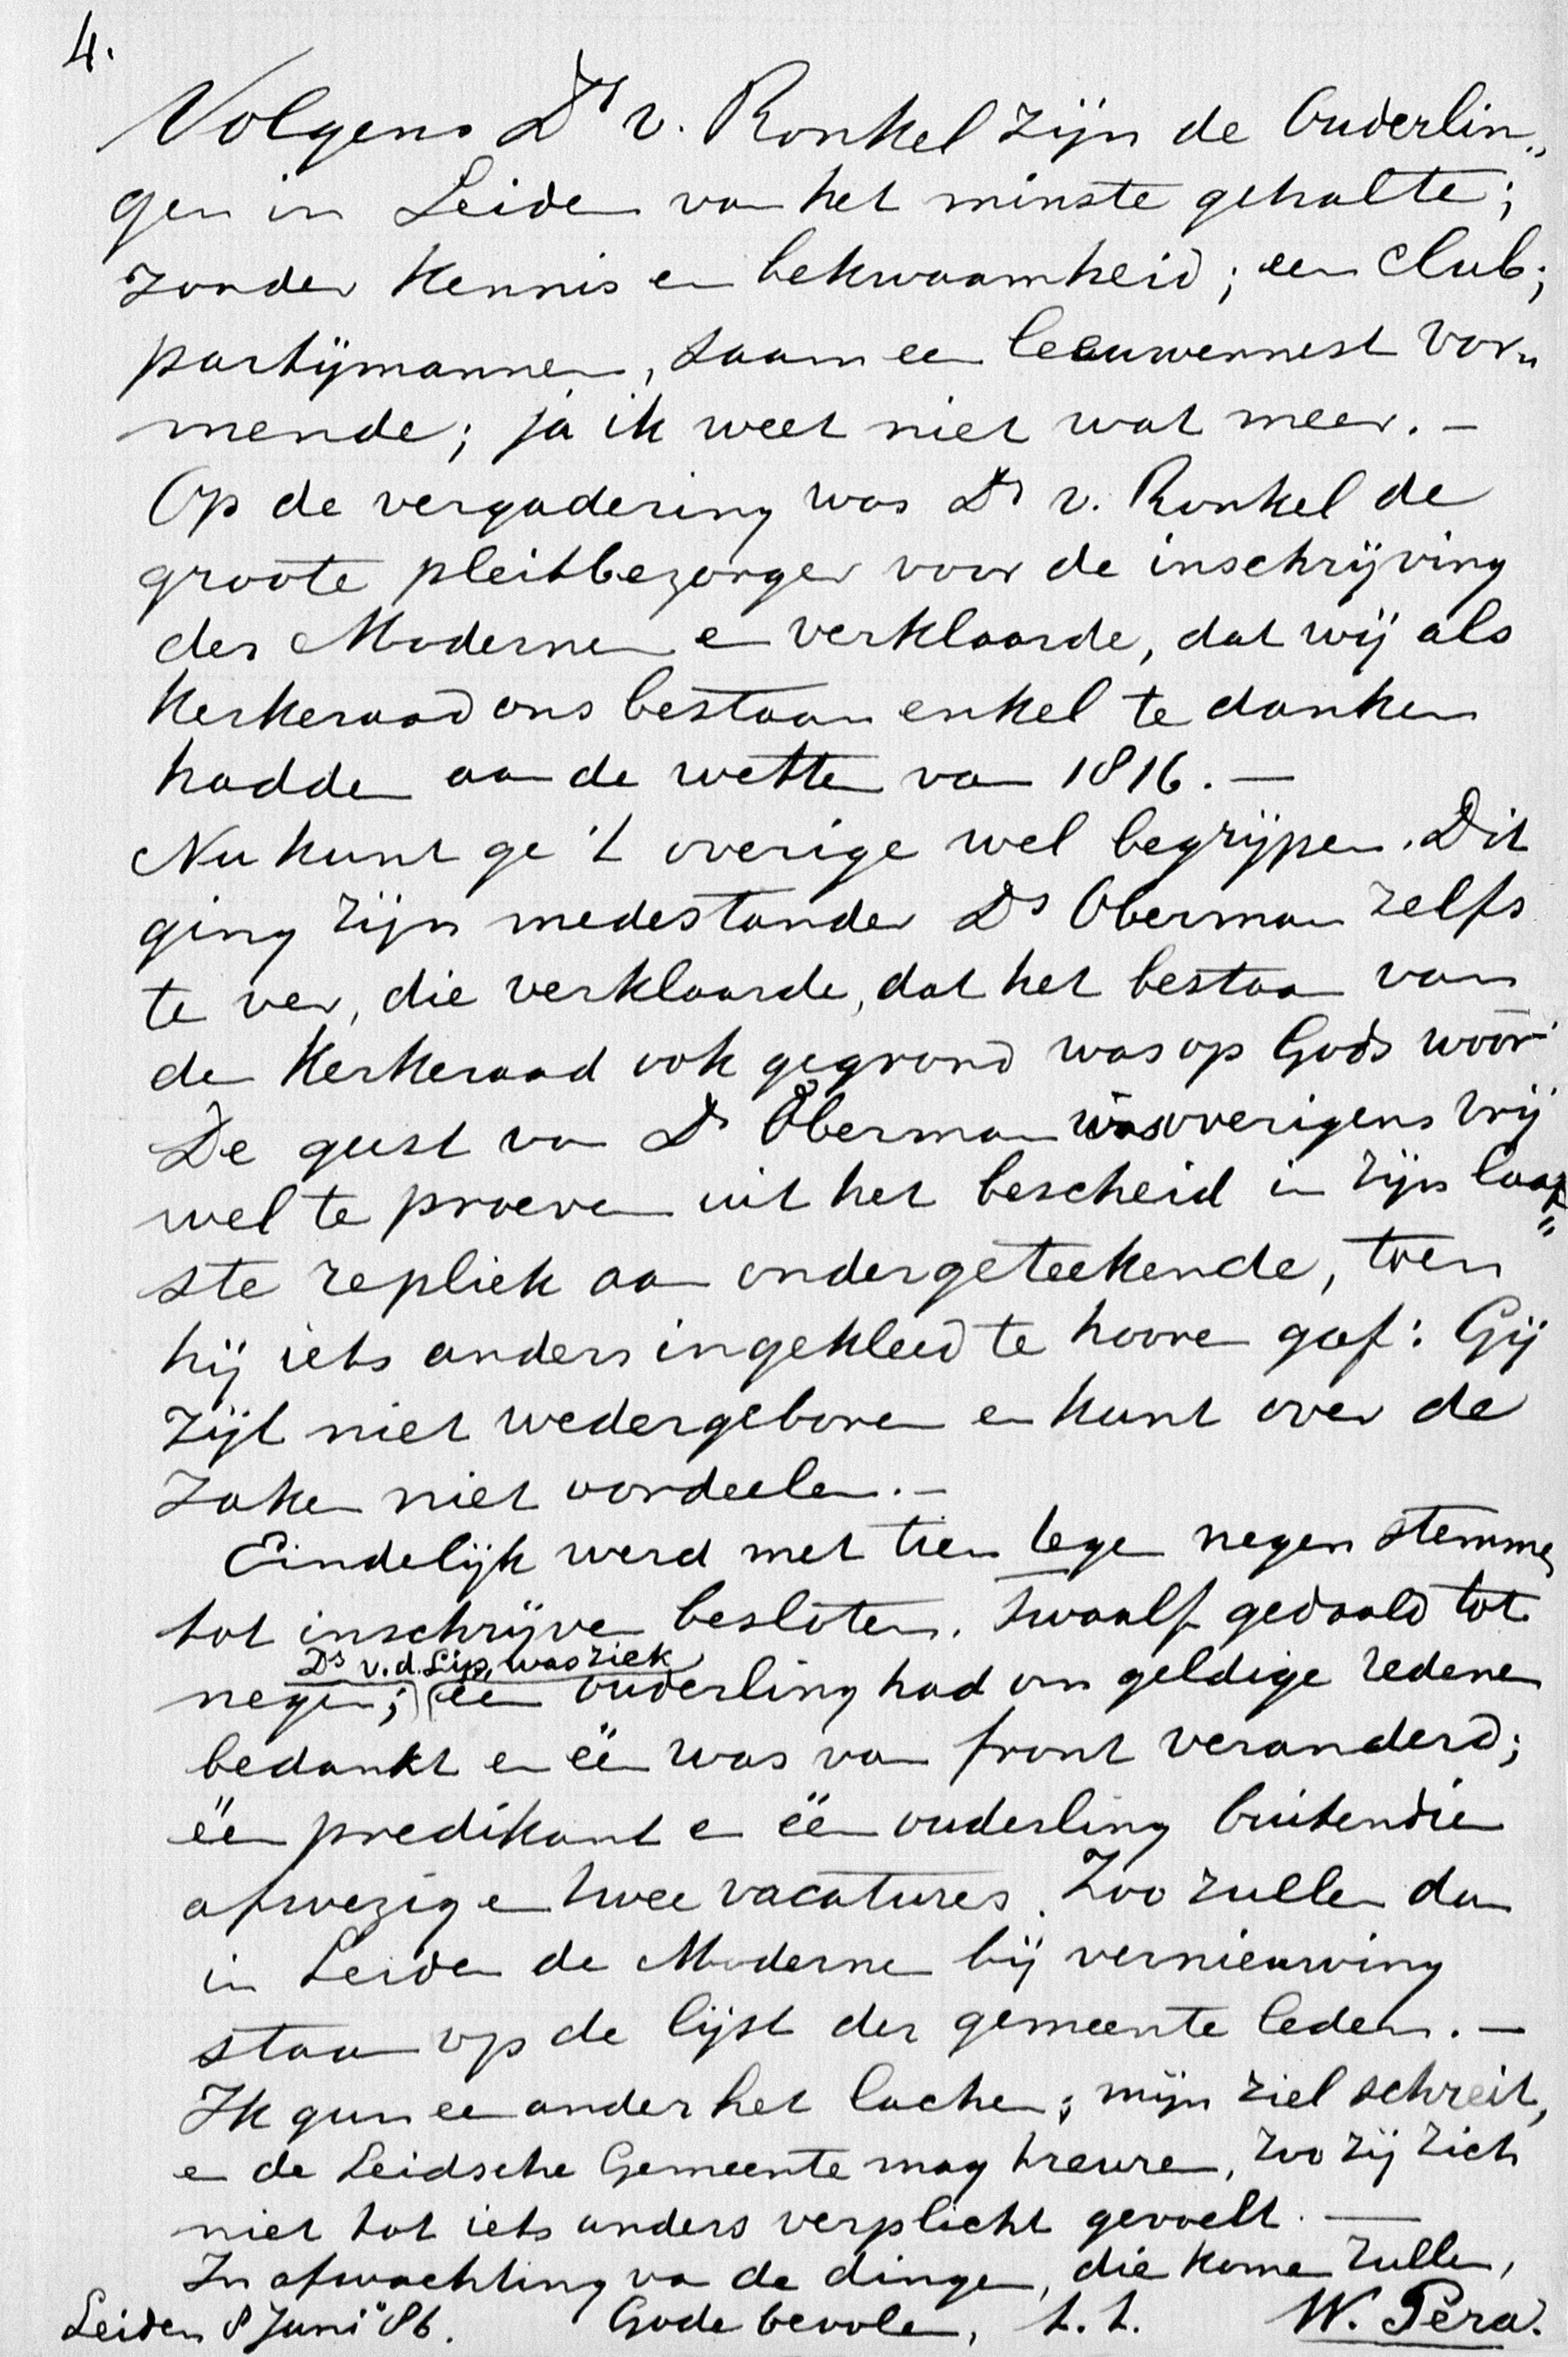 4.
Volgens Ds v. Ronkel zijn de Ouderlin„
gen in Leiden van het minste gehalte;
zonder kennis en bekwaamheid; een club;
partijmannen, saam een leeuwennest vor„
mende; ja ik weet niet wat meer. —
Op de vergadering was Ds v. Ronkel de
groote pleitbezorger voor de inschrijving
der Modernen en verklaarde, dat wij als
Kerkeraad ons bestaan enkel te danken
hadden aan de wetten van 1816. —
Nu kunt ge 't overige wel begrijpen. Dit
ging zijn medestander Ds Oberman zelfs
te ver, die verklaarde, dat het bestaan van
den Kerkeraad ook gegrond was op Gods woord
De geest van Ds Oberman was overigens vrij
wel te proeven uit het bescheid in zijn laat„
ste repliek aan ondergeteekende, toen
hij iets anders ingekleed te hooren gaf: Gij
zijt niet wedergeboren en kunt over de
zaken niet oordeelen. —
Eindelijk werd met tien tegen negen stemmen
tot inschrijven besloten. Twaalf gedaald tot
Ds v. d. Lip, was ziek
negen; (één ouderling had om geldige redenen
bedankt en één was van front veranderd;
één predikant en één ouderling buitendien
afwezig en twee vacatures. Zoo zullen dan
in Leiden de Modernen bij vernieuwing
staan op de lijst der gemeente leden. —
Ik gun een ander het lachen; mijn ziel schreit,
en de Leidsche Gemeente mag treuren, zoo zij zich
niet tot iets anders verplicht gevoelt. —
In afwachting van de dingen, die komen zullen,
Leiden 8 Juni '86. Gode bevolen, t. t. W. Pera.